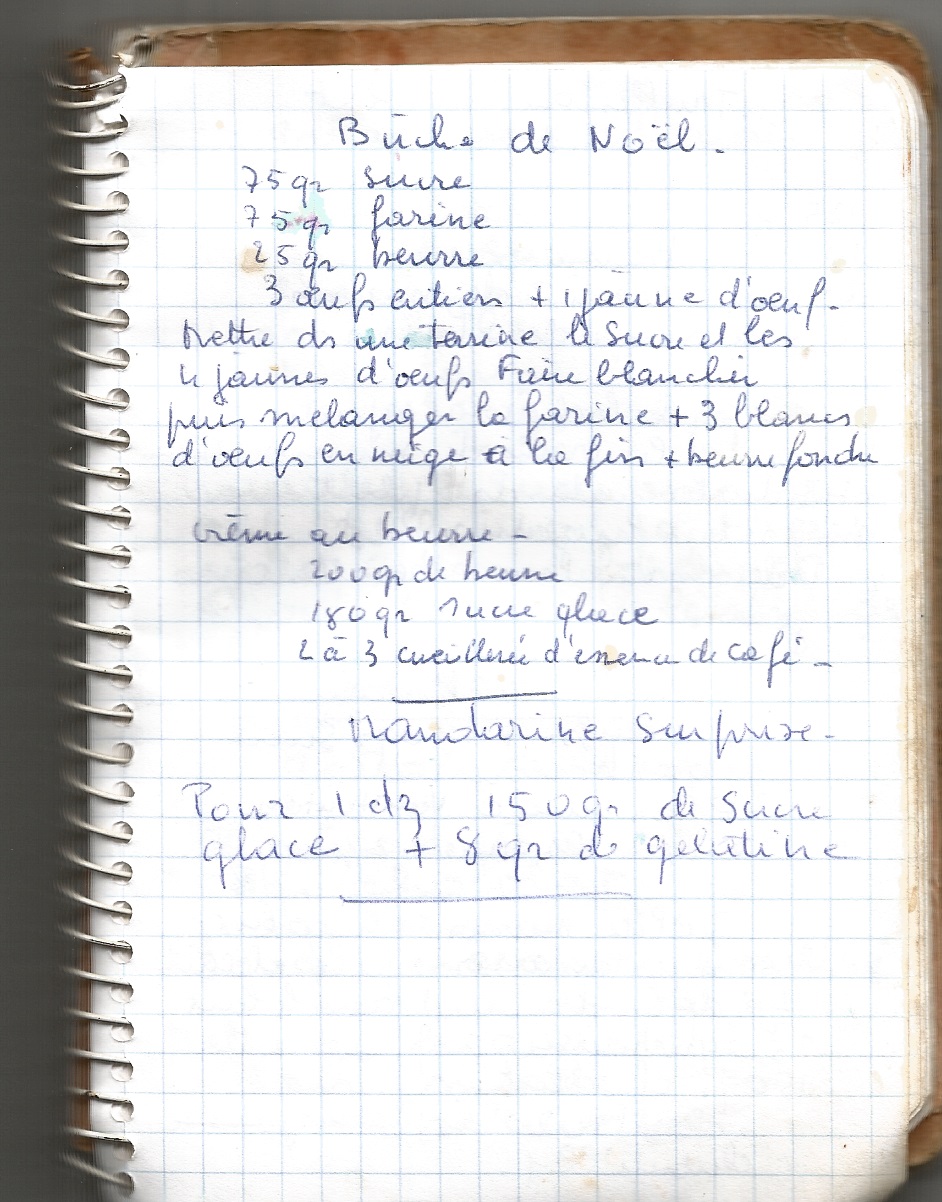 Bûche de Noël.
75 gr sucre
75 gr farine
25 gr beurre
3 œufs entiers + 1 jaune d'oeuf.
Mettre ds une terrine le sucre et les
4 jaunes d'oeufs Faire blanchir
puis mélanger la farine + 3 blancs
d'oeufs en neige à la fin + beurre fondu
Crème au beurre -
200 gr de beurre
180 gr sucre glace
2 à 3 cueillerée d'essence de café -
Mandarine Surprise -
Pour 1 dz 150 gr de sucre
glace + 8 gr de gélatine